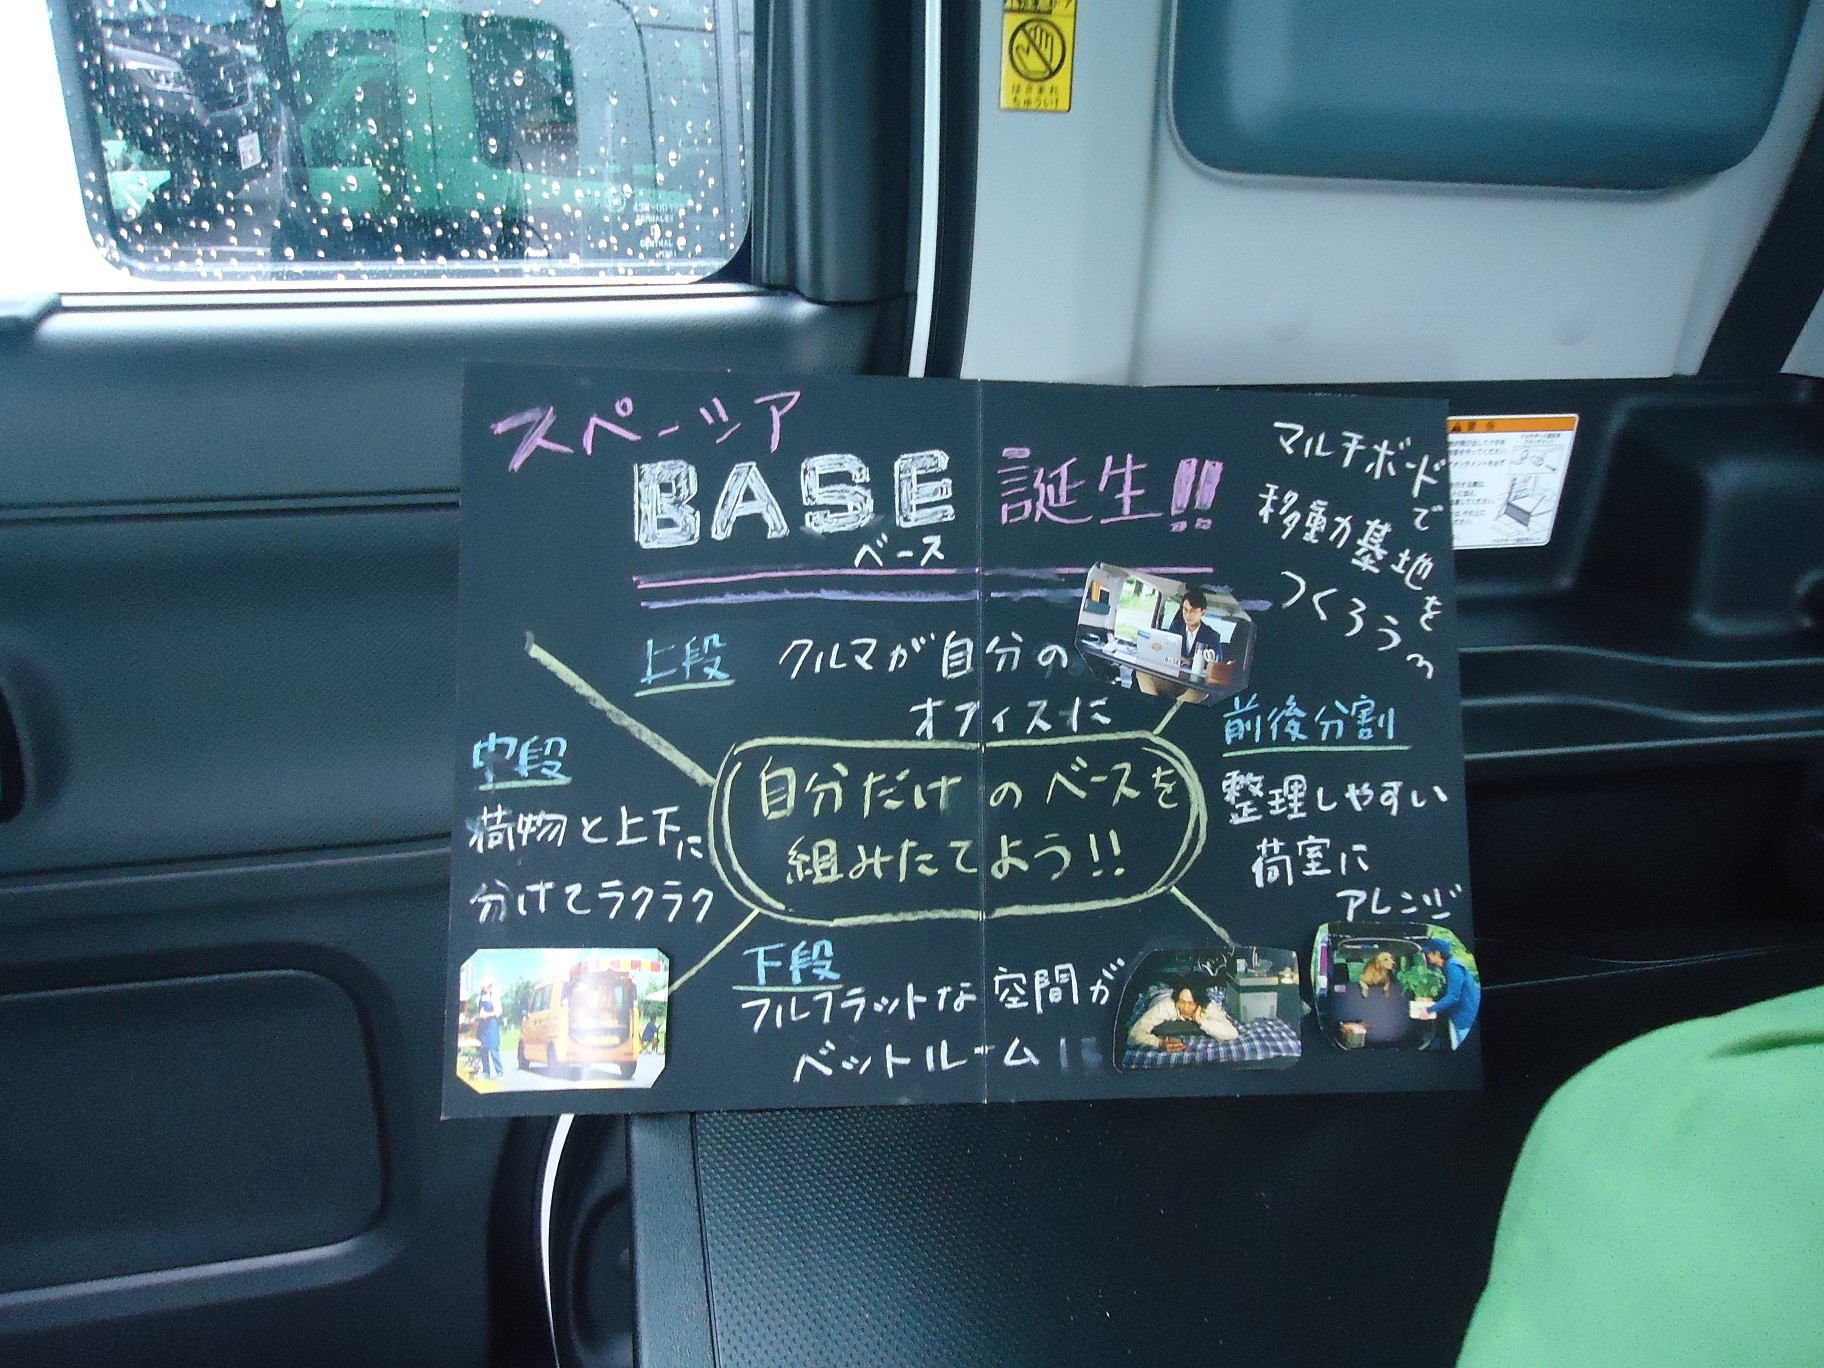 はさまれ
ちゅうい!
スペーシア
BASE 誕生!!
ベース
マルチボードで
移動基地を
つくろう
上段
クルマが自分の
オフィスに
中段
荷物と上下に
分けてラクラク
自分だけのベースを
組みたてよう!!
前後分割
整理しやすい
荷室に
アレンジ
下段
フルフラットな空間が
ベットルームに